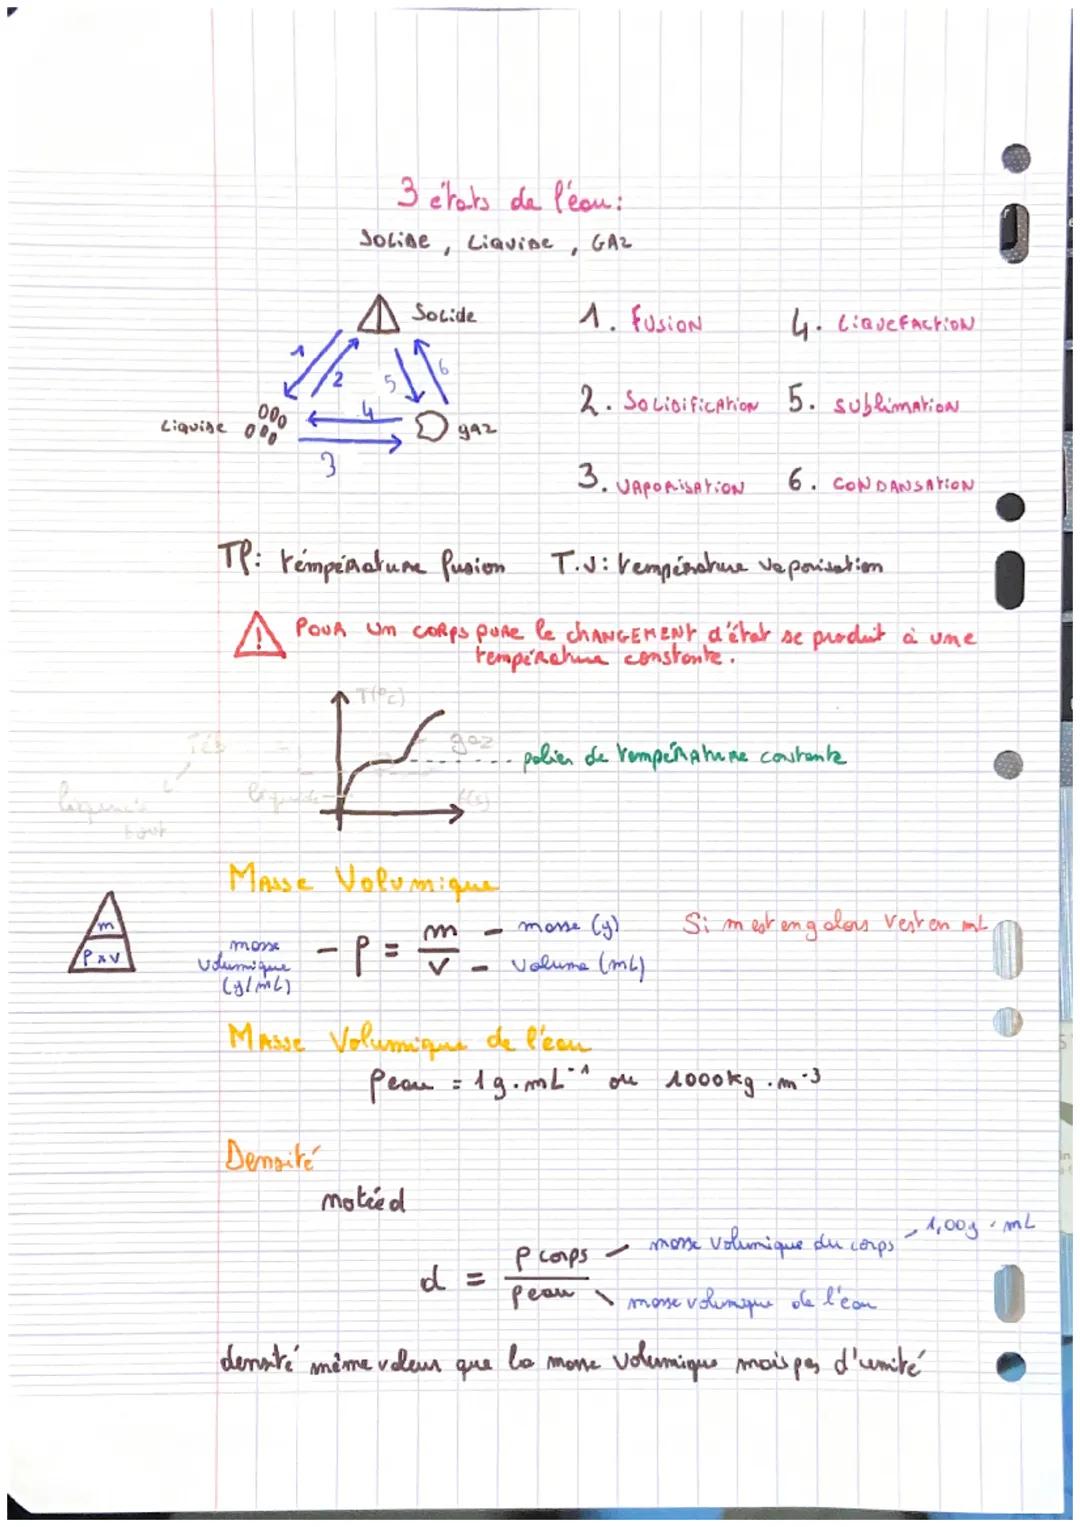 3 états de l'éau:
SOLIDE, LiQUIDE, GAZ
Solide
1. FUSION
4. LiQUEFACtiON
1
2
5
6
2. SOLIDIFICATION
5. SUBliMATION
Liquide
4
gaz
3
3. VAPORISATION
6. CONDANSATION
Tf: température fusion T.V: température vaporisation
! POUR Um CORPS PURE le CHANGEMENT d'état se produit à une
température constante.
T(°C)
gaz
palier de température constante
liquide
t(s)
Masse Volumique
m
ρ x v
masse volumique (g/mL) - ρ = m/v - masse (g) - volume (mL)
Si m est en g alors V est en mL
Masse Volumique de l'eau
ρeau = 1g.mL⁻¹ ou 1000kg.m⁻³
Densité
notée d
d = ρ corps / ρeau
masse volumique du corps
1,00g.mL
masse volumique de l'eau
densité même valeur que la masse volumique mais pas d'unité